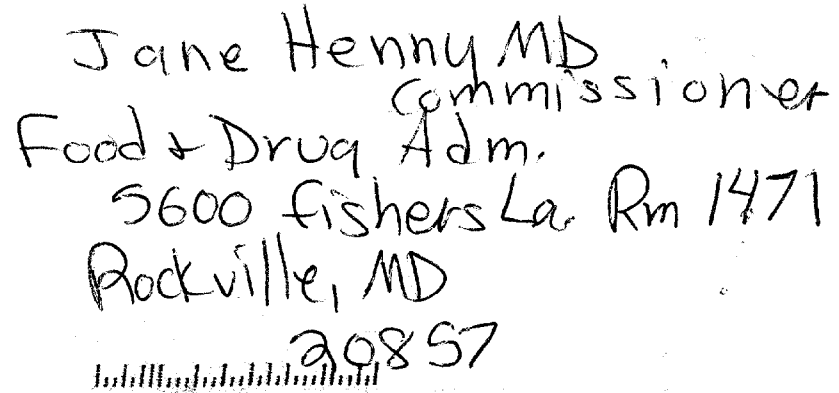 Jane Henny MD
Commissioner
Food & Drug Adm.
5600 fishers La. Rm 1471
Rockville, MD
20857